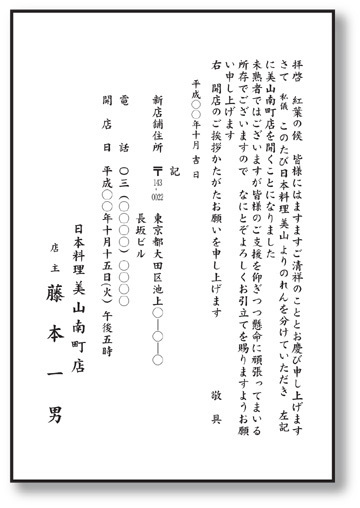 拝啓　紅葉の候　皆様にはますますご清祥のこととお慶び申し上げます
さて　私儀　このたび日本料理 美山 よりのれんを分けていただき　左記
に美山南町店を開くことになりました
未熟者ではございますが皆様のご支援を仰ぎつつ懸命に頑張ってまいる
所存でございますので　なにとぞよろしくお引立てを賜りますようお願
い申し上げます
右　開店のご挨拶かたがたお願いを申し上げます　敬具
平成〇〇年十月吉日
記
新店舗住所　〒143-0022　東京都大田区池上〇―〇―〇
長坂ビル
電話　〇三（〇〇〇〇）〇〇〇〇
開店日　平成〇〇年十月十五日（火）午後五時
日本料理 美山南町店
店主　藤本一男